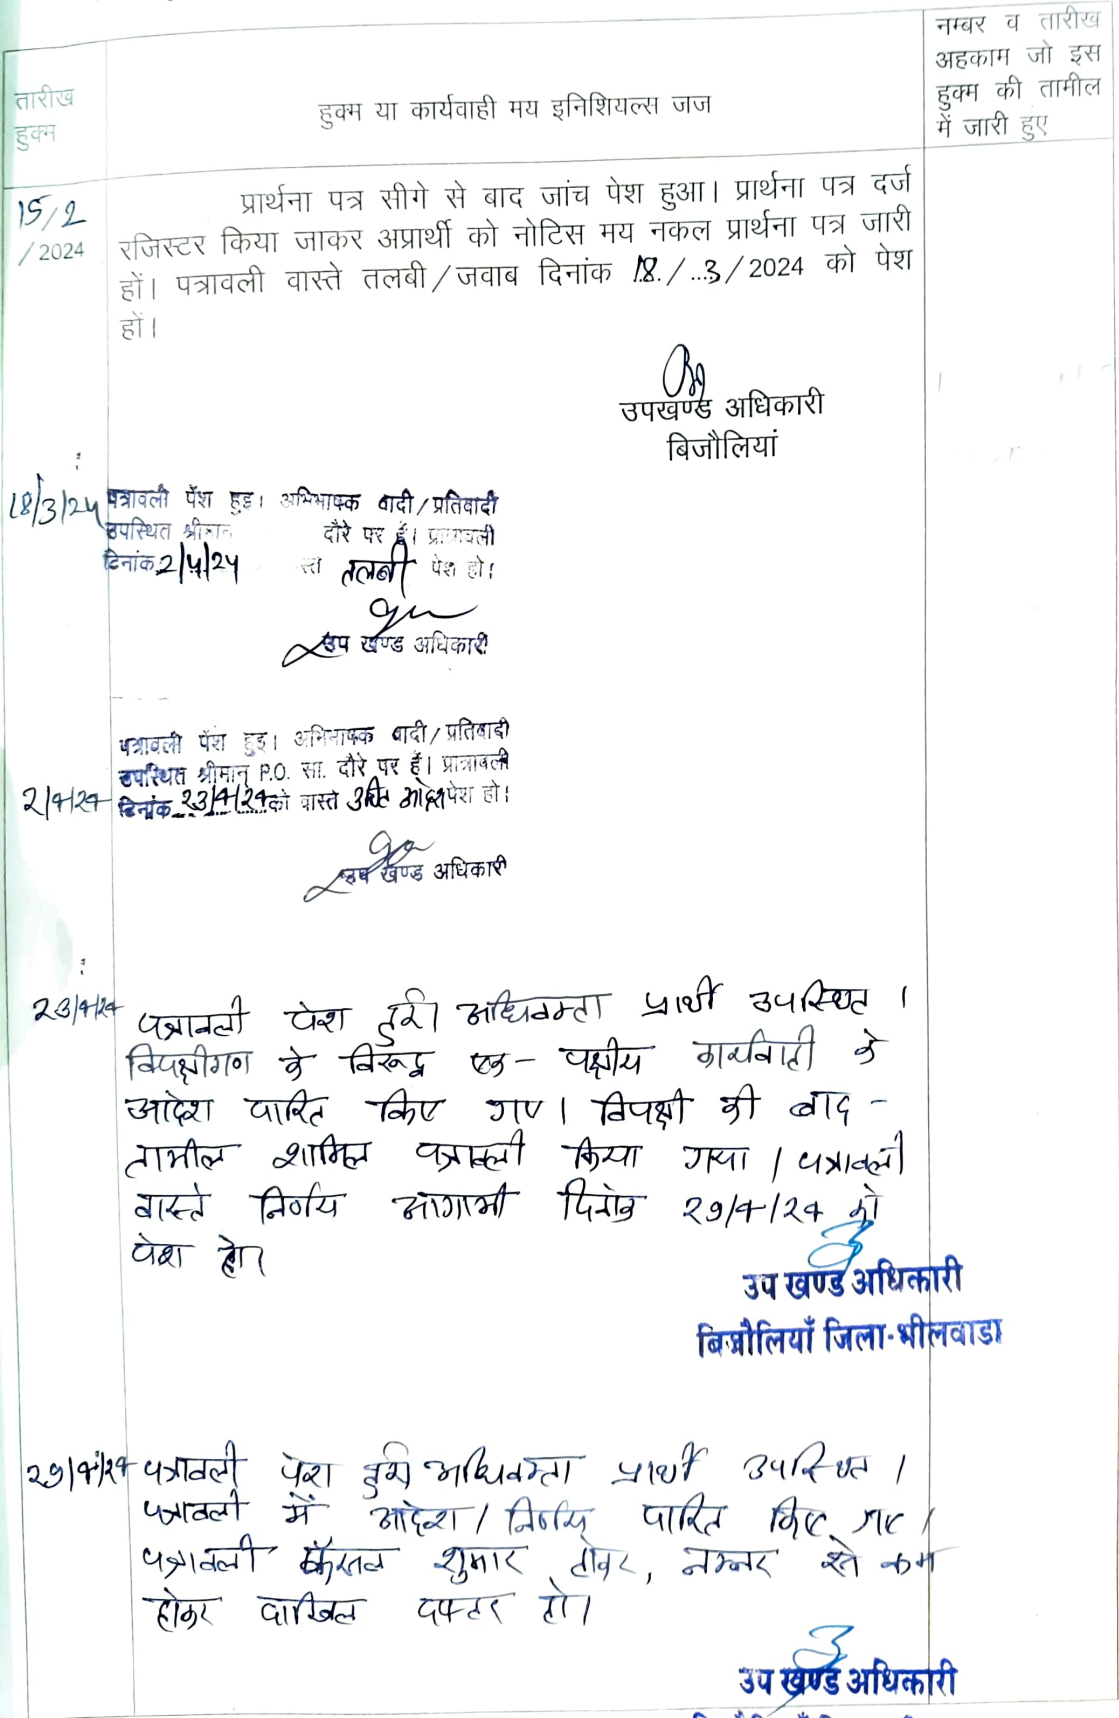 नम्बर व तारीख
अहकाम जो इस
हुक्म की तामील
में जारी हुए
तारीख
हुक्म
हुक्म या कार्यवाही मय इनिशियल्स जज
15/2
/2024
प्रार्थना पत्र सीगे से बाद जांच पेश हुआ। प्रार्थना पत्र दर्ज
रजिस्टर किया जाकर अप्रार्थी को नोटिस मय नकल प्रार्थना पत्र जारी
हों। पत्रावली वास्ते तलबी/जवाब दिनांक 18./..3/2024 को पेश
हों।
उपखण्ड अधिकारी
बिजौलियां
18/3/24 पत्रावली पेंश हुइ। अभिभाषक वादी/प्रतिवादी
उपस्थित श्रीमान दौरे पर हैं। प्रात्रावली
दिनांक 2/4/24 स्त तलबी पेश हो।
उप खण्ड अधिकारी
पत्रावली पेंश हुइ। अभिभाषक वादी/प्रतिवादी
उपस्थित श्रीमान् P.O. सा. दौरे पर हैं। प्रात्रावली
2/4/24 दिनांक 23/4/24 को वास्ते उचित आदेश पेश हो।
उप खण्ड अधिकारी
23/4/24 पत्रावली पेश हुई। अधिवक्ता प्रार्थी उपस्थित।
विपक्षीगण के विरूद्ध एक-पक्षीय कार्यवाही के
आदेश पारित किए गए। विपक्षी की बाद-
तामील शामिल पत्रावली किया गया। पत्रावली
वास्ते निर्णय आगामी दिनांक 29/4/24 को
पेश हो।
उप खण्ड अधिकारी
बिजौलियाँ जिला-भीलवाडा
29/4/24 पत्रावली पेश हुई अधिवक्ता प्रार्थी उपस्थित।
पत्रावली में आदेश/निर्णय पारित किए गए।
पत्रावली फैसल शुमार होकर, नम्बर से कम
होकर दाखिल दफ्तर हो।
उप खण्ड अधिकारी